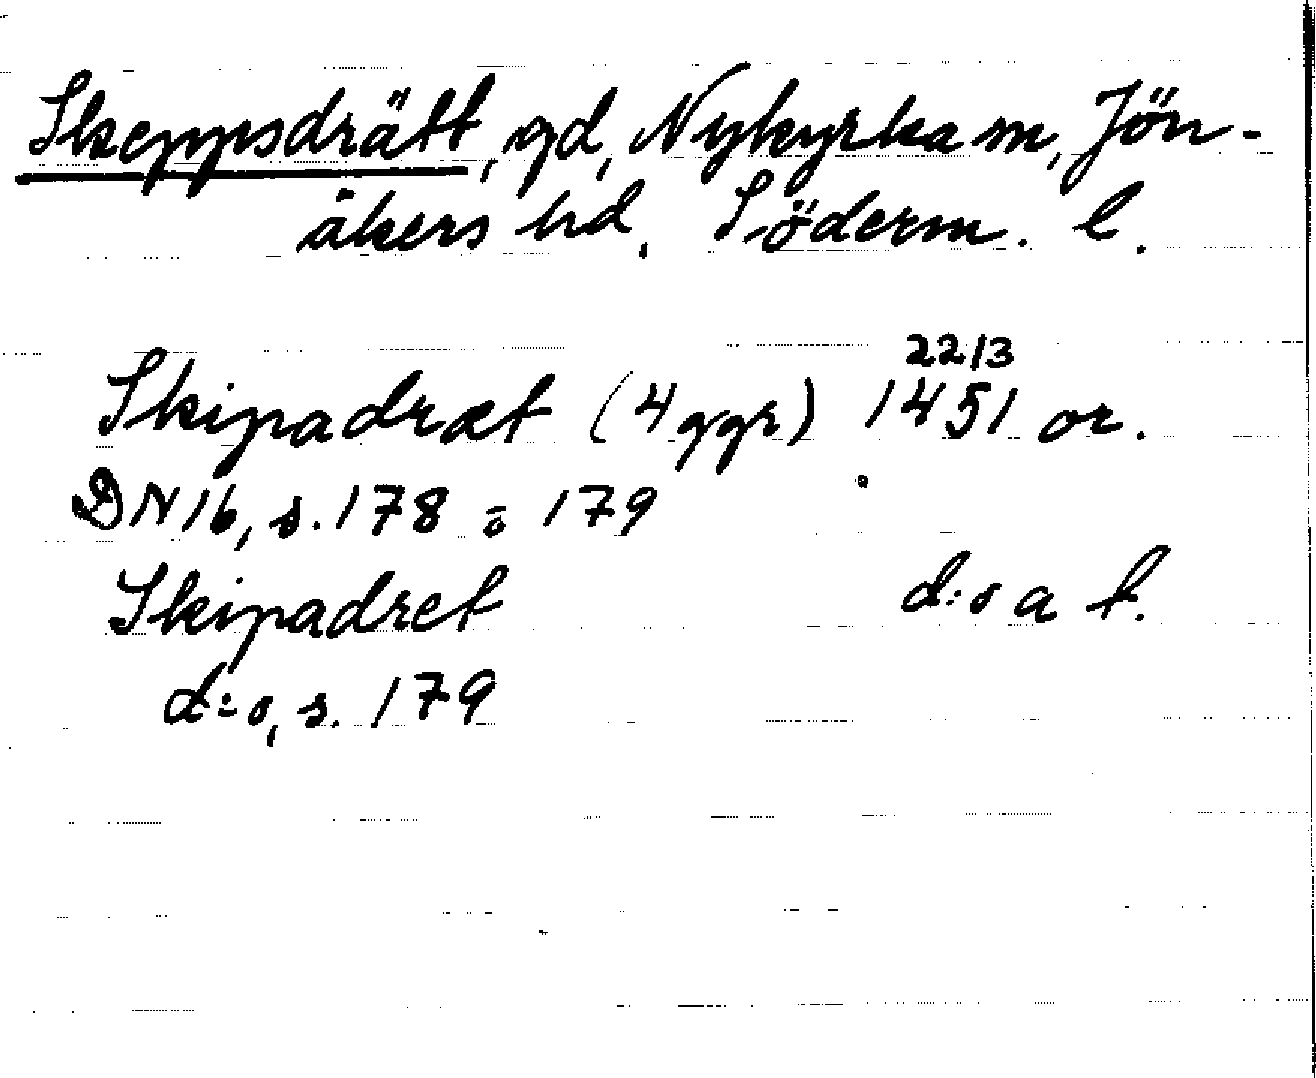 Skeppsdrätt, gd, Nykyrka sn, Jön-
åkers hd, Söderm. l.
Skipadræt (4 ggr) 22/3 1451 or.
DN 16, s. 178 o 179
Skipadret d:o a t.
d:o, s. 179